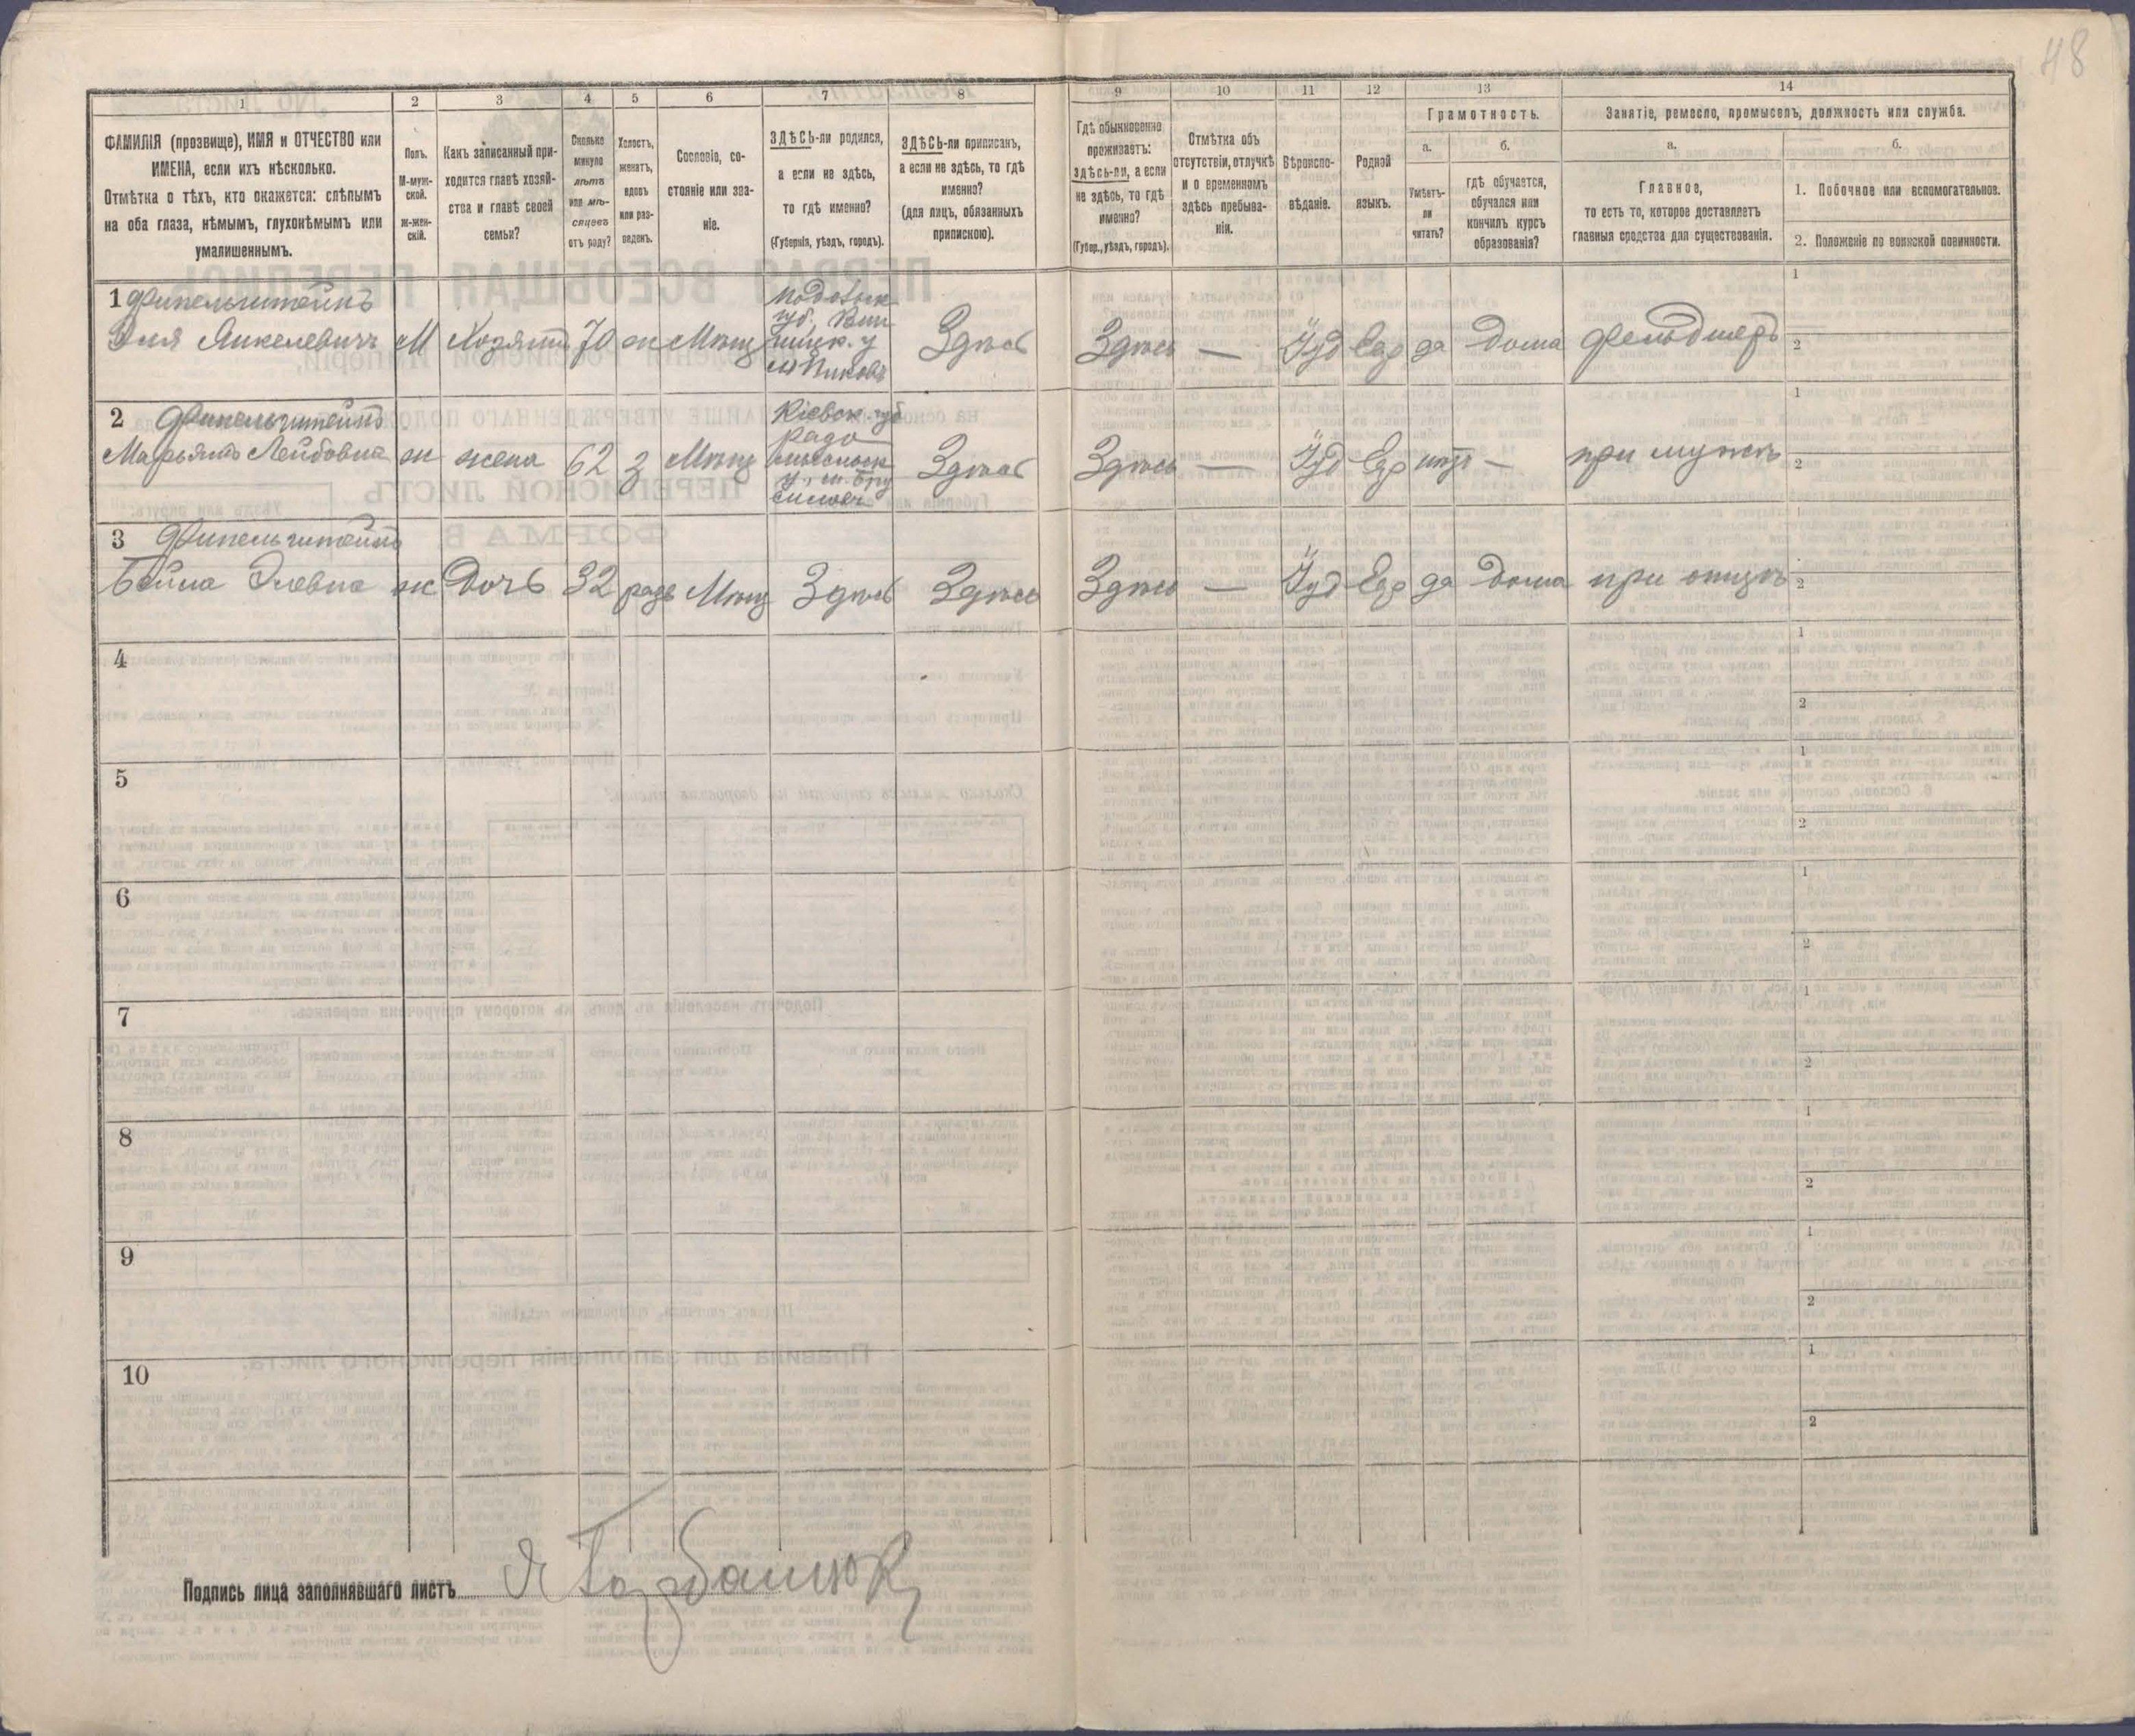 48
1
2
3
4
5
6
7
8
9
10
11
12
13
14
ФАМИЛІЯ (прозвище), ИМЯ и ОТЧЕСТВО или
ИМЕНА, если ихъ нѣсколько.
Отмѣтка о тѣхъ, кто окажется: слѣпымъ
на оба глаза, нѣмымъ, глухонѣмымъ или
умалишеннымъ.
Полъ.
М-муж-
ской.
Ж-жен-
скій.
Какъ записанный при-
ходится главѣ хозяй-
ства и главѣ своей
семьи?
Сколько
минуло
лѣтъ
или мѣ-
сяцевъ
отъ роду?
Холостъ,
женатъ,
вдовъ
или раз-
веденъ.
Сословіе, со-
стояніе или зва-
ніе.
ЗДѢСЬ-ли родился,
а если не здѣсь,
то гдѣ именно?
(Губернія, уѣздъ, городъ).
ЗДѢСЬ-ли приписанъ,
а если не здѣсь, то гдѣ
именно?
(для лицъ, обязанныхъ
припискою).
Гдѣ обыкновенно
проживаетъ:
здѣсь-ли, а если
не здѣсь, то гдѣ
именно?
(Губер., уѣздъ, городъ).
Отмѣтка объ
отсутствіи, отлучкѣ
и о временномъ
здѣсь пребыва-
ніи.
Вѣроиспо-
вѣданіе.
Родной
языкъ.
Грамотность.
а.
Умѣетъ-
ли
читать?
б.
гдѣ обучается,
обучался или
кончилъ курсъ
образованія?
Занятіе, ремесло, промыселъ, должность или служба.
а.
Главное,
то есть то, которое доставляетъ
главныя средства для существованія.
б.
1. Побочное или вспомогательное.
2. Положеніе по воинской повинности.
1 Финельштейнъ
Эля Янкелевичъ М Хозяинъ 70 ж Мѣщ
Подольск.
губ., Вин-
ницк. у
м Пиковъ
Здѣсь Здѣсь — Іуд Евр да дома фельдшеръ
1
2
2 Финельштейнъ
Марьямъ Лейбовна ж жена 62 з Мѣщ
Кіевск. губ
Радо
мысльск
у., м. Бру
силовъ
Здѣсь Здѣсь — Іуд Евр нѣтъ — при мужѣ
1
2
3 Финельштейнъ
Бейла Элевна ж Дочь 32 разв Мѣщ Здѣсь Здѣсь Здѣсь — Іуд Евр да дома при отцѣ
1
2
4
1
2
5
1
2
6
1
2
7
1
2
8
1
2
9
1
2
10
1
2
Подпись лица заполнявшаго листъ